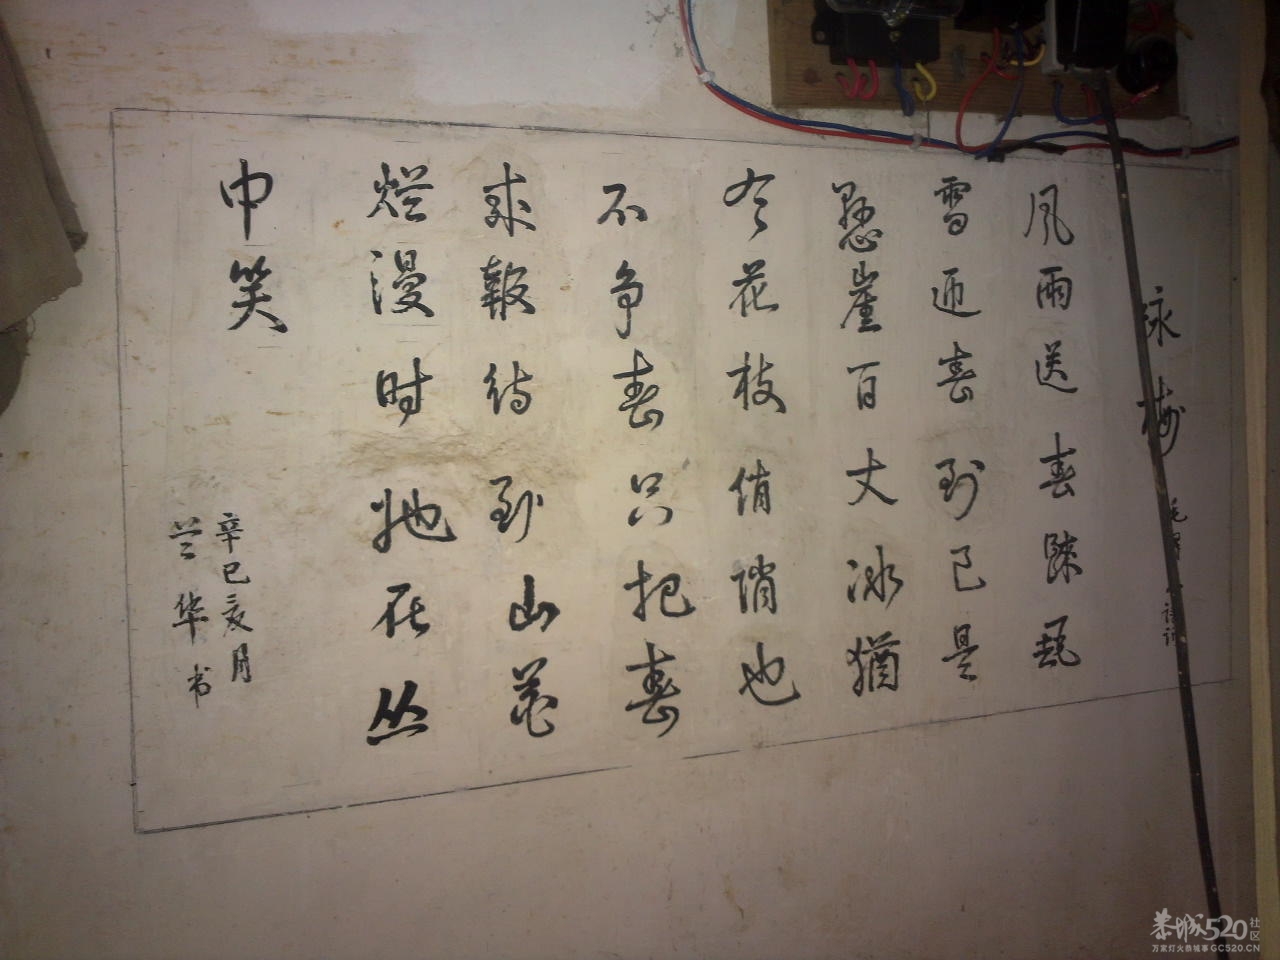 咏梅
风雨送春歸飛
雪迎春到已是
懸崖百丈冰猶
有花枝俏俏也
不争春只把春
来報待到山花
烂漫时她在丛
中笑
辛巳亥月
兰华书
恭城520社区
万家灯火恭城事GC520.CN